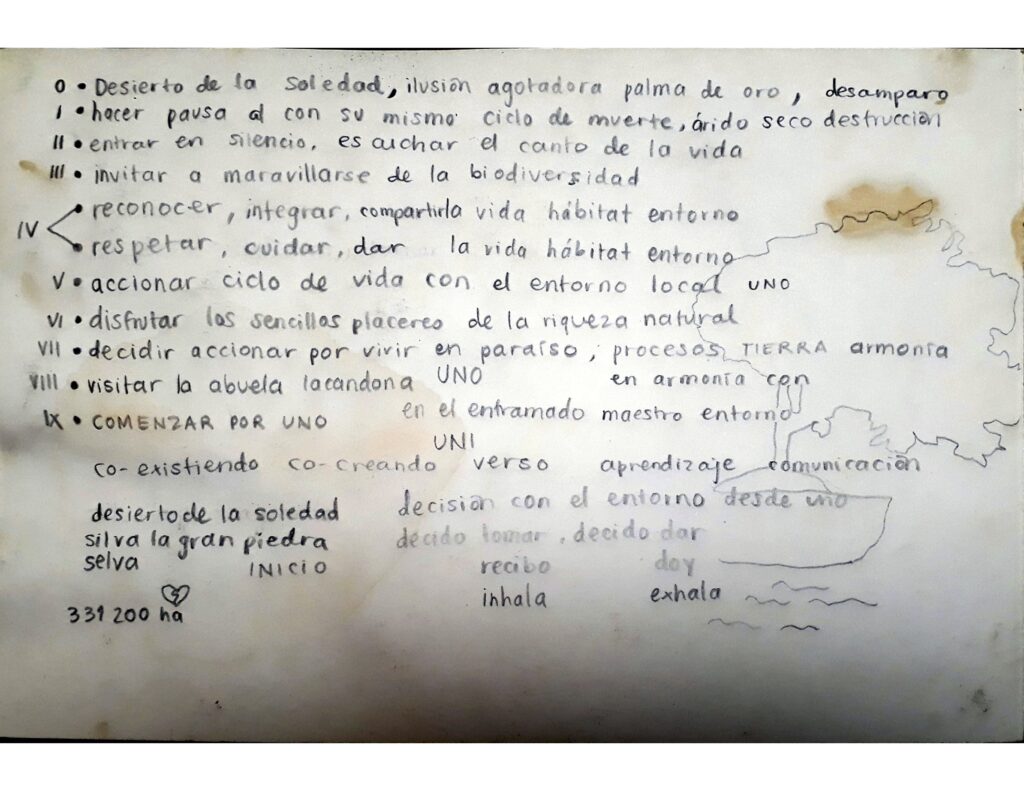 0 • Desierto de la soledad, ilusión agotadora palma de oro, desamparo
I • hacer pausa al con su mismo ciclo de muerte, árido seco destrucción
II • entrar en silencio, escuchar el canto de la vida
III • invitar a maravillarse de la biodiversidad
• reconocer, integrar, compartirla vida hábitat entorno
IV
• respetar, cuidar, dar la vida hábitat entorno
V • accionar ciclo de vida con el entorno local UNO
VI • disfrutar los sencillos placeres de la riqueza natural
VII • decidir accionar por vivir en paraíso, procesos TIERRA armonía
VIII • visitar la abuela lacandona UNO en armonía con
IX • COMENZAR POR UNO en el entramado maestro entorno
UNI
co-existiendo co-creando verso aprendizaje comunicación
desierto de la soledad decisión con el entorno desde uno
silva la gran piedra decido tomar, decido dar
selva INICIO recibo doy
inhala exhala
331 200 ha